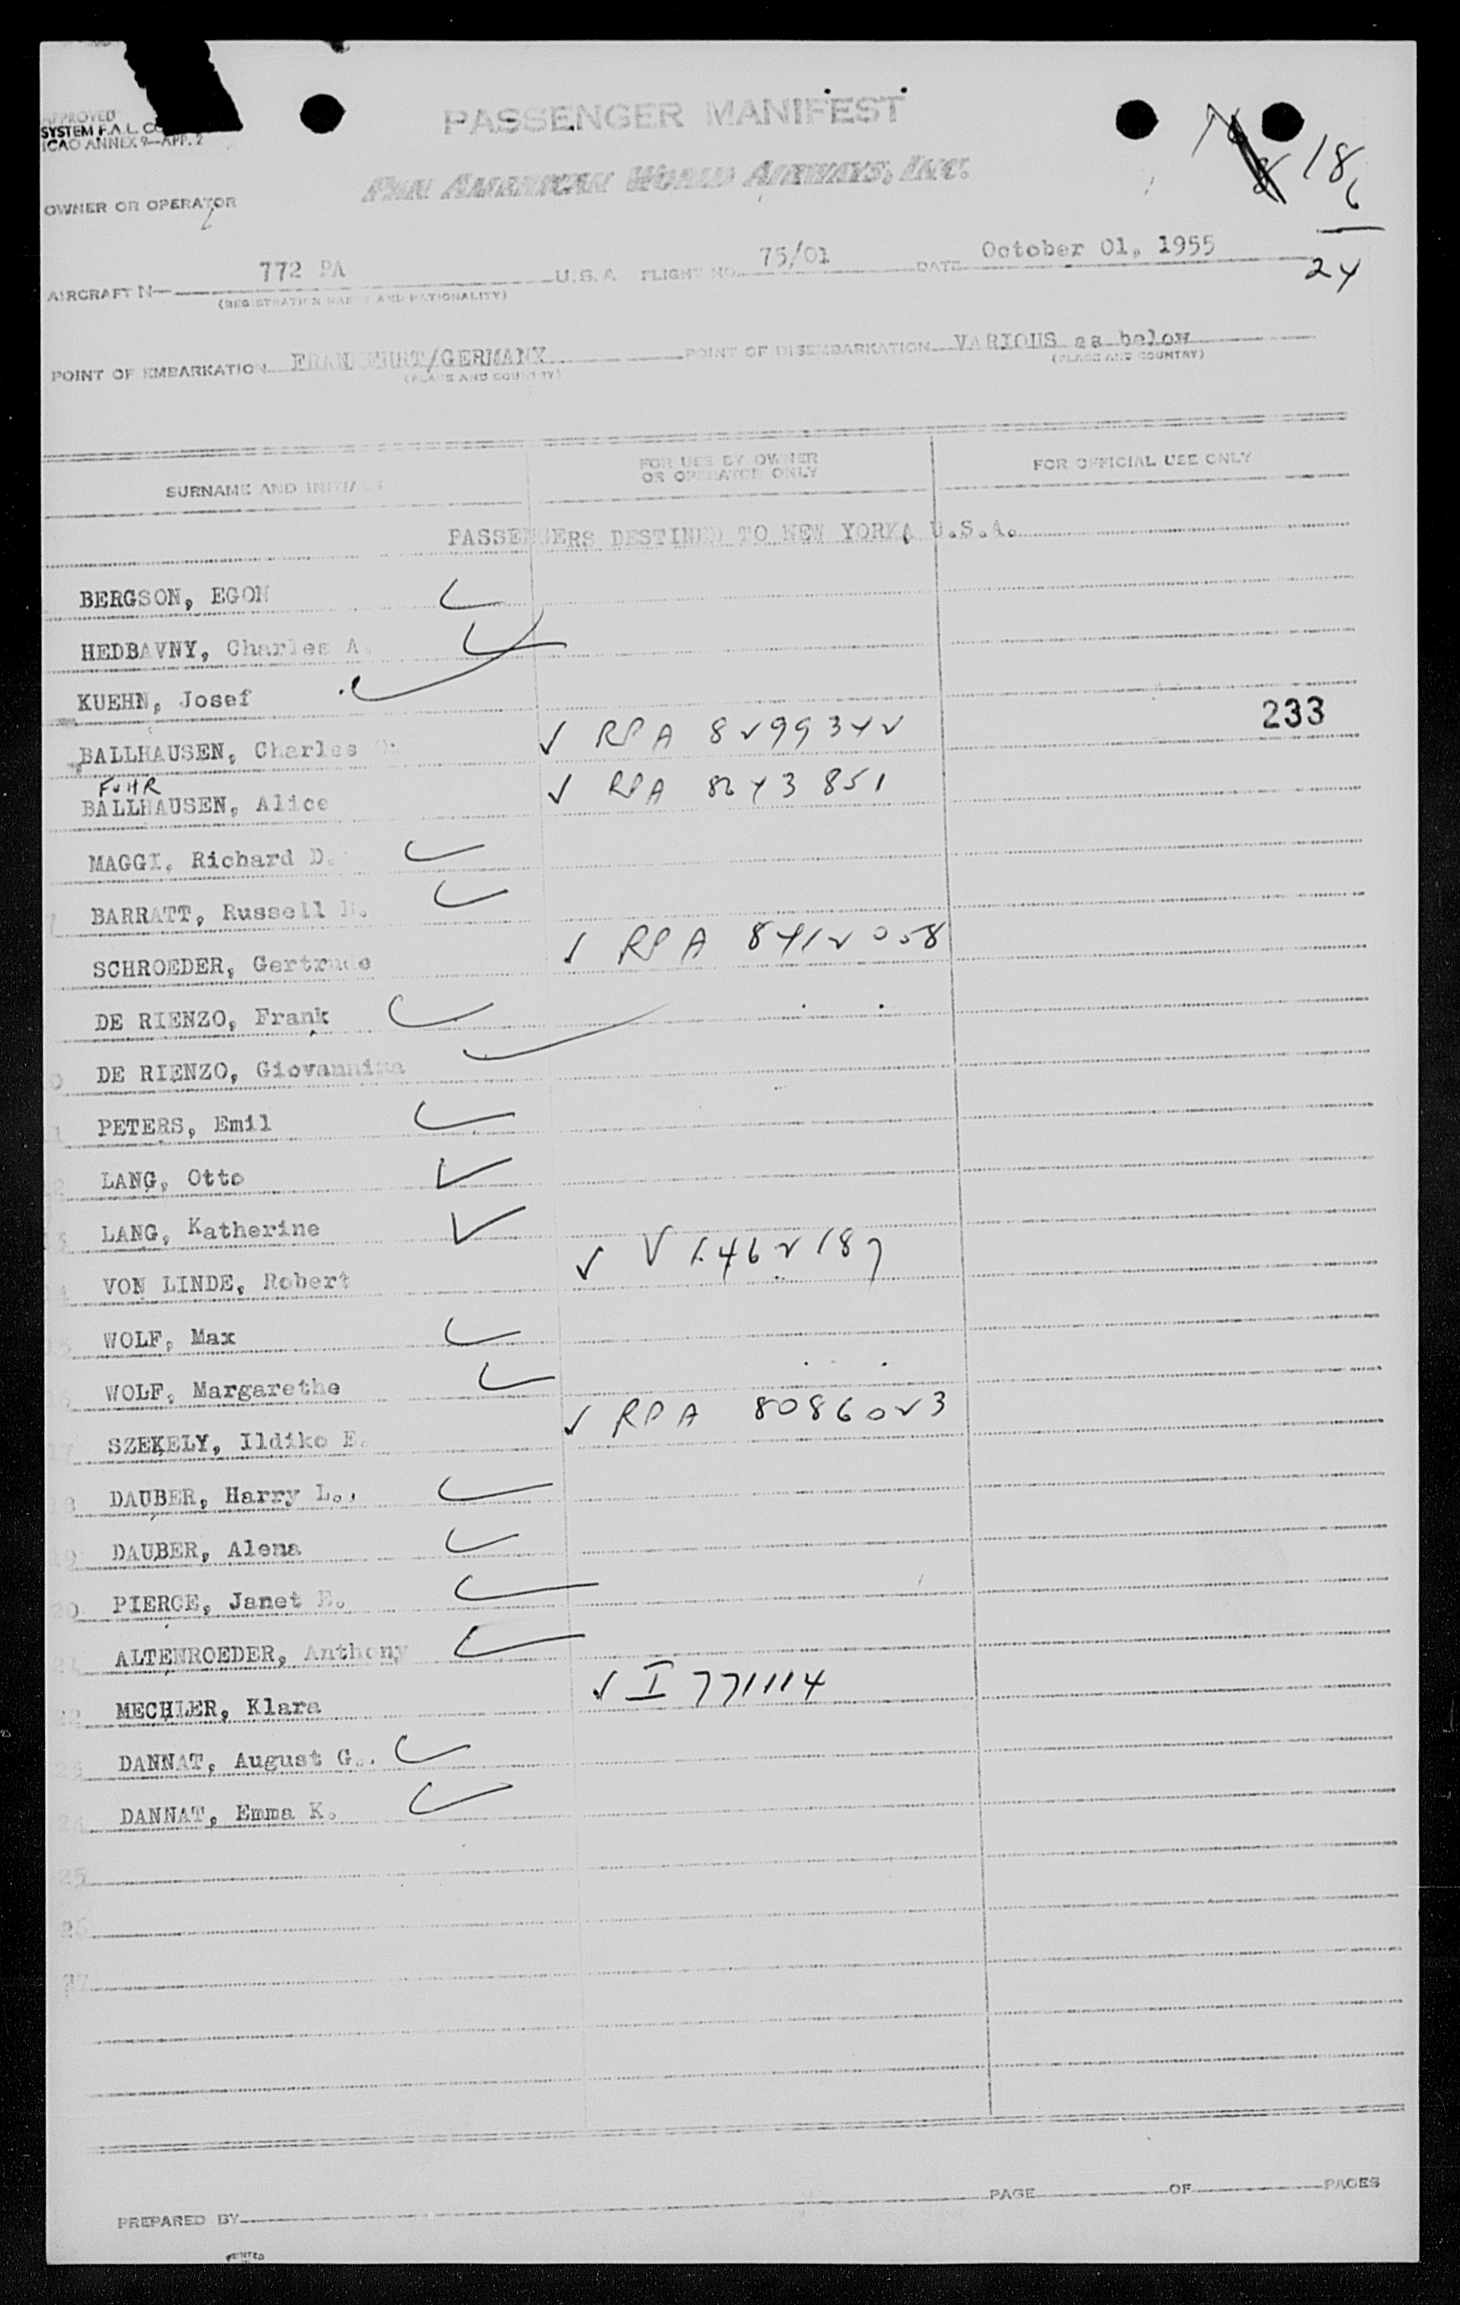 APPROVED
SYSTEM F.A.L. CO
ICAO ANNEX 9—APP. 2
PASSENGER MANIFEST
PAN AMERICAN WORLD AIRWAYS, INC.
18
6
24
OWNER OR OPERATOR
AIRCRAFT N— 772 PA U.S.A FLIGHT NO. 75/01 DATE October 01, 1955
(REGISTRATION MARKS AND NATIONALITY)
POINT OF EMBARKATION FRANKFURT/GERMANY POINT OF DISEMBARKATION VARIOUS as below
(PLACE AND COUNTRY) (PLACE AND COUNTRY)
SURNAME AND INITIALS FOR USE BY OWNER OR OPERATOR ONLY FOR OFFICIAL USE ONLY
PASSENGERS DESTINED TO NEW YORK, U.S.A.
BERGSON, EGON
HEDBAVNY, Charles A.
KUEHN, Josef
233
BALLHAUSEN, Charles ✓ RPA 8299342
FUHR
BALLHAUSEN, Alice ✓ RPA 8243851
MAGGI, Richard D.
BARRATT, Russell H.
SCHROEDER, Gertrude ✓ RPA 8412058
DE RIENZO, Frank
DE RIENZO, Giovannina
PETERS, Emil
LANG, Otto
LANG, Katherine
VON LINDE, Robert ✓ V 1462187
WOLF, Max
WOLF, Margarethe
SZEKELY, Ildiko E. ✓ RPA 8086023
DAUBER, Harry L.,
19 DAUBER, Alena
20 PIERCE, Janet E.
21 ALTENROEDER, Anthony
22 MECHLER, Klara ✓ I 771114
23 DANNAT, August G..
24 DANNAT, Emma K.
25
26
27
PREPARED BY PAGE OF PAGES
PRINTED